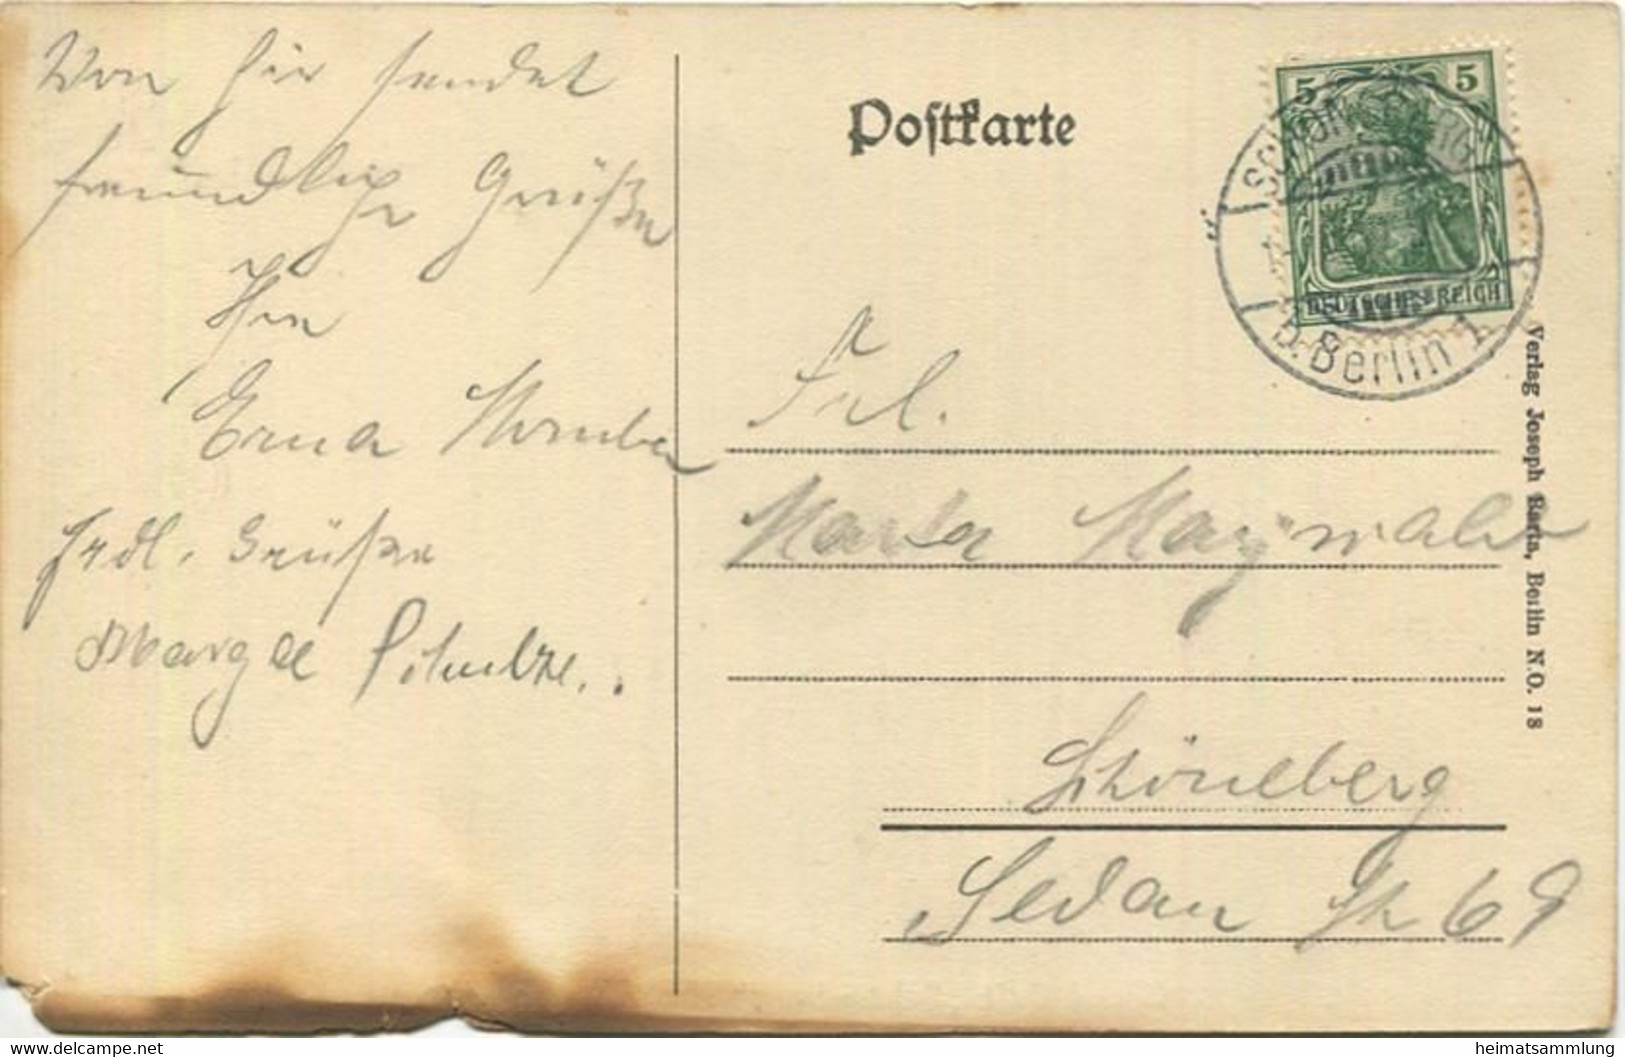 Von hier sendet
freundliche Grüße
Ihre
Erna
Frdl. Grüße
Schultze.
Postkarte
5 5
DEUTSCHES REICH
SCHÖNEBERG
b. Berlin 1
Frl.
Martha Maywald
Schöneberg
Sedan Str 69
Verlag Joseph Berlin N.O. 18
heimatsammlung